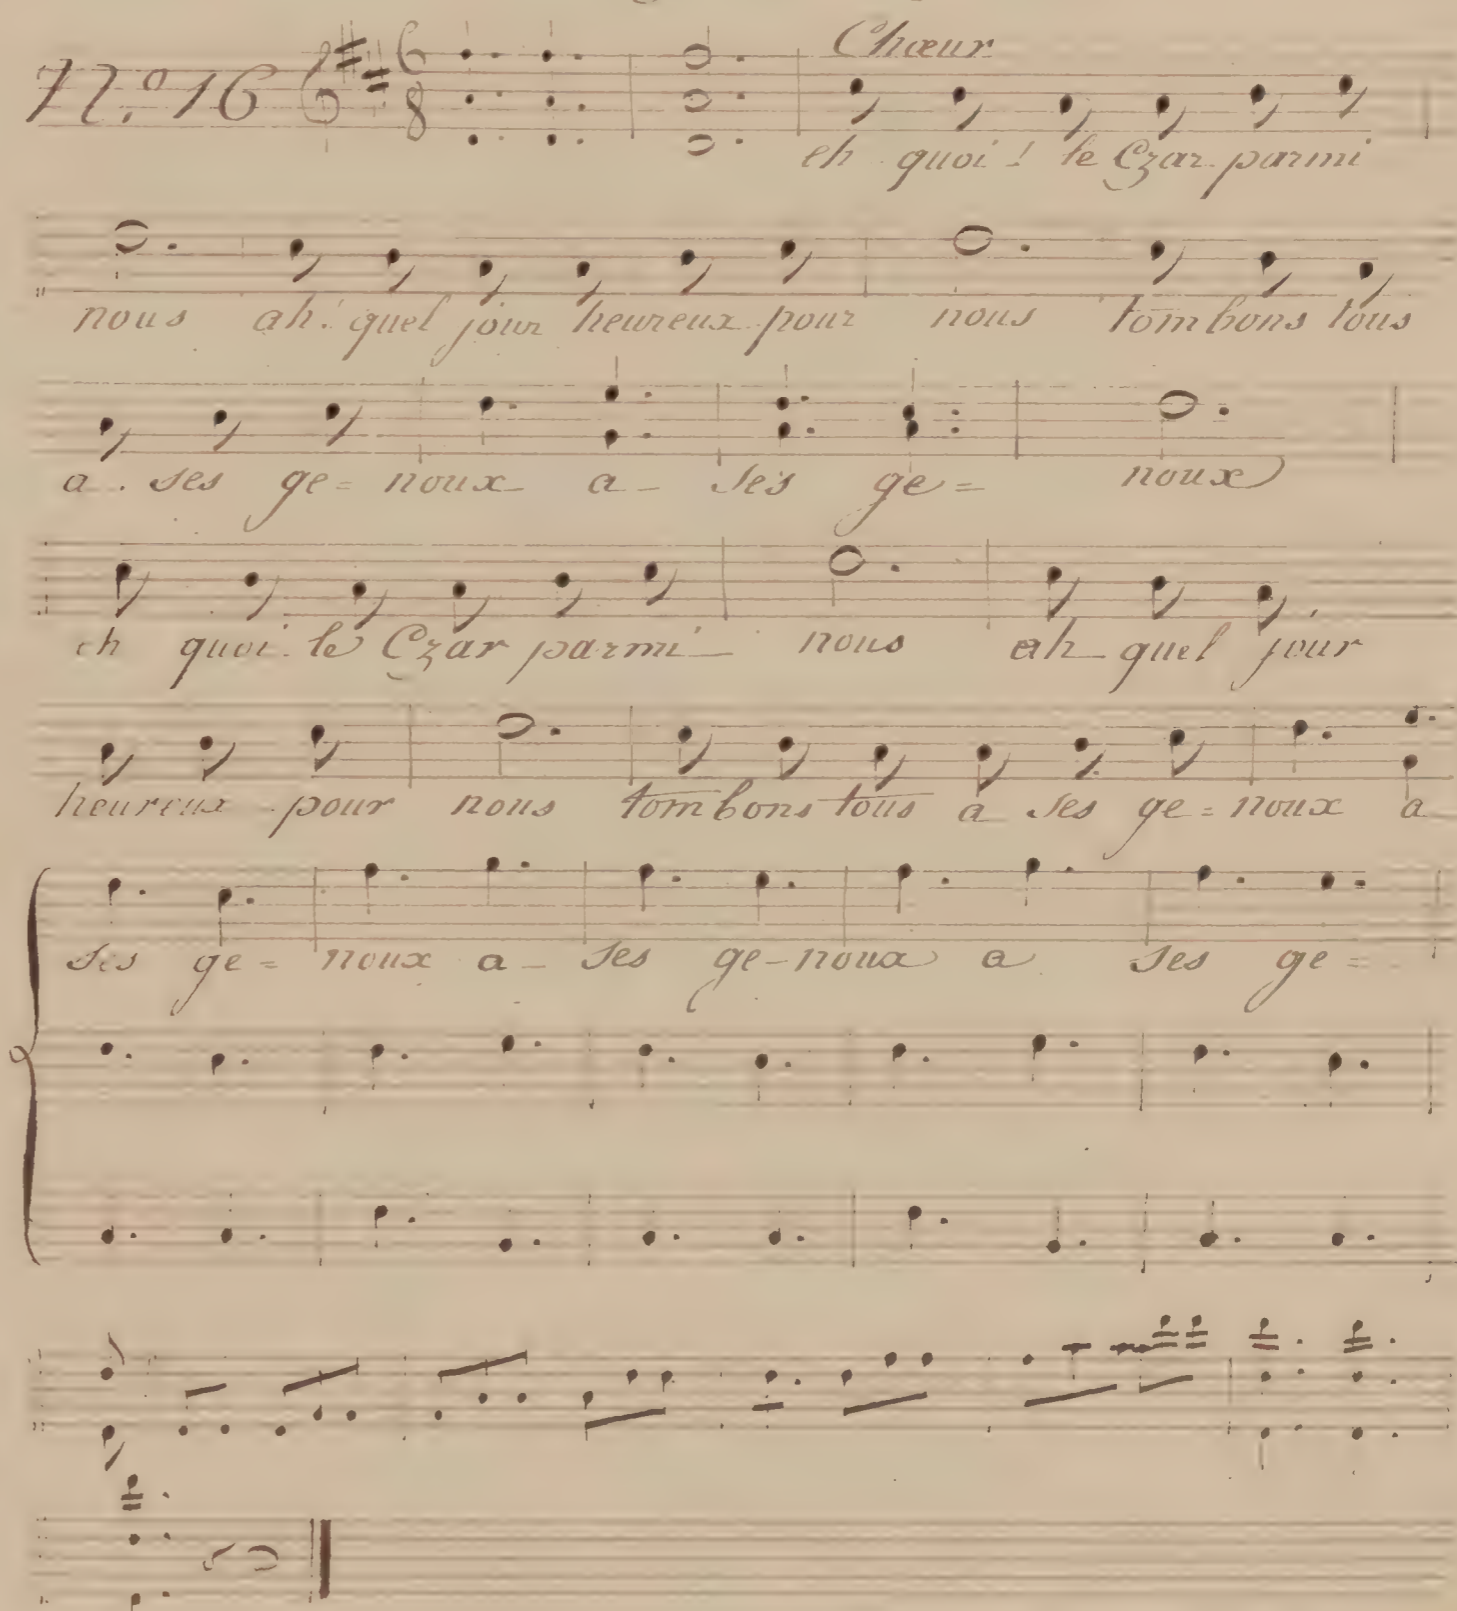 Chœur
N.º 16 6 8
eh quoi! le Czar parmi
nous ah! quel jour heureux pour nous tombons tous
a ses ge= noux a ses ge= noux
eh quoi. le Czar parmi nous ah quel jour
heureux pour nous tombons tous a ses ge= noux a
ses ge= noux a ses ge-noux a ses ge=